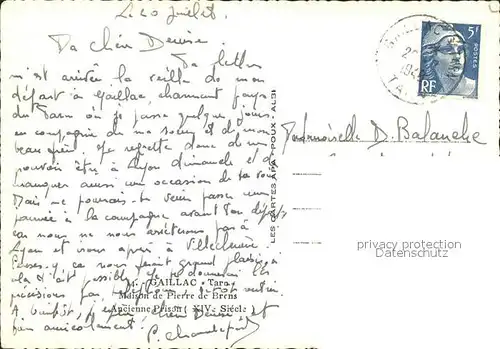 Le 20 juillet
Ma chère Denise.
Ta lettre
m'est arrivée la veille de mon
départ à Gaillac, charmant pays
du Tarn où je passe quelque jours
en compagnie de ma soeur et de mon
beau frère. Je regrette donc de ne
pouvoir être à Lyon dimanche et de
manquer aussi une occasion de te voir
Mais ne pourrais-tu venir passer une
journée à la campagne avant ton départ
car nous ne nous arrêterons pas à
Lyon et irons après à
Penses-y ce nous ferait grand plaisir,
si c'était possible. Je te donnerai les
précisions par
A bientôt, chère Denise et
bien amicalement.
M. - GAILLAC - Tarn
Maison de Pierre de Brens
Ancienne Prison (XIVe Siècle)
LES CARTES APA - POUX - ALBI
5F
POSTES
RF
Mademoiselle D. Balanche
privacy protection
Datenschutz